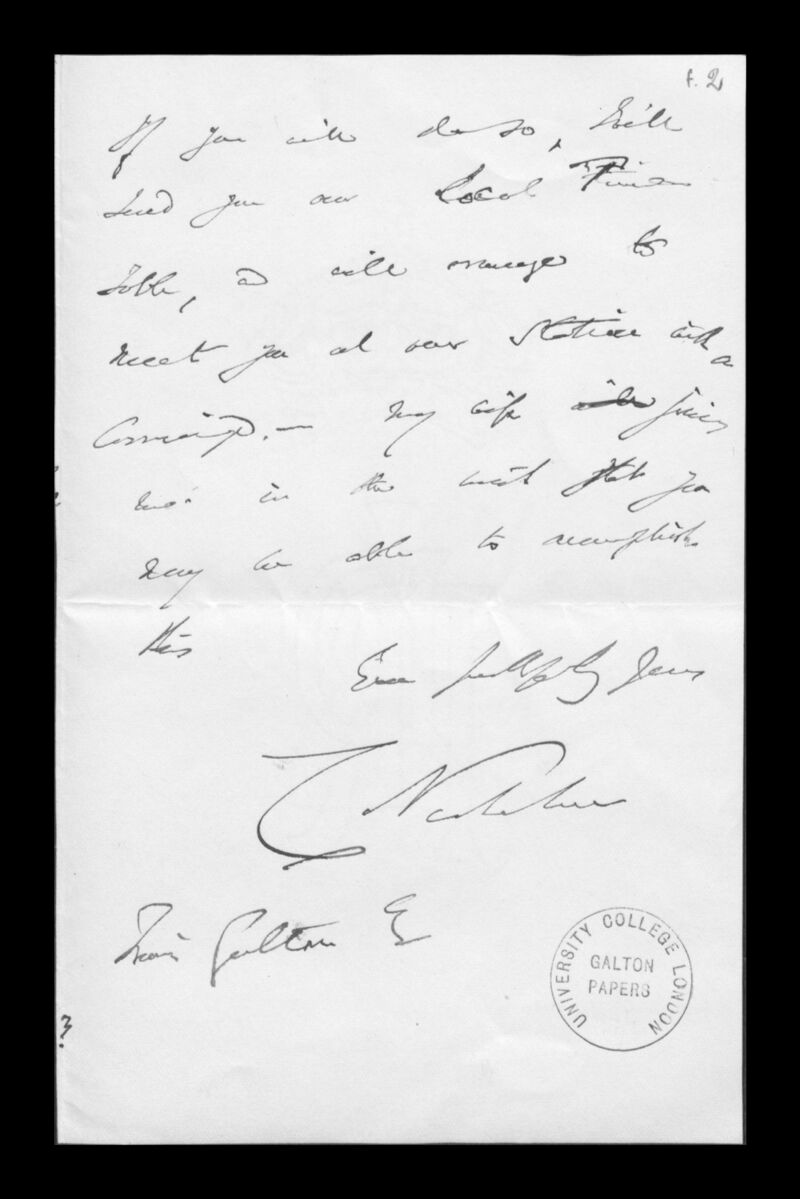 f. 2
If you will do so, I will
send you our Local Time
Table, and will arrange to
meet you at our Station with a
Carriage. — My wife joins
me in the wish that you
may be able to accomplish
this
Ever faithfully Yours
Francis Galton Esq
UNIVERSITY COLLEGE LONDON
GALTON
PAPERS
?